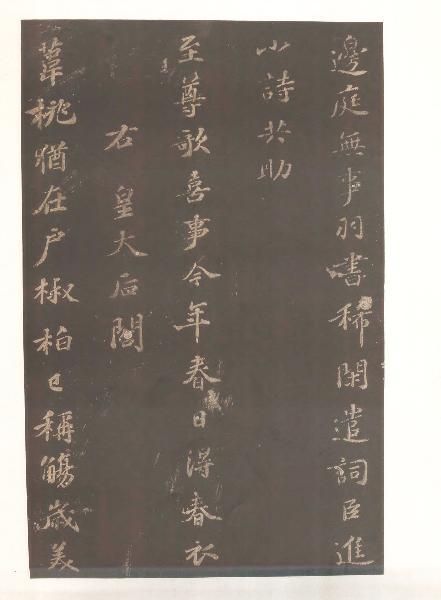 邊庭無事羽書稀閑遣詞臣進
小詩共助
至尊歌喜事今年春日得春衣
右皇太后閤
葦桃猶在戶椒柏已稱觴歲美